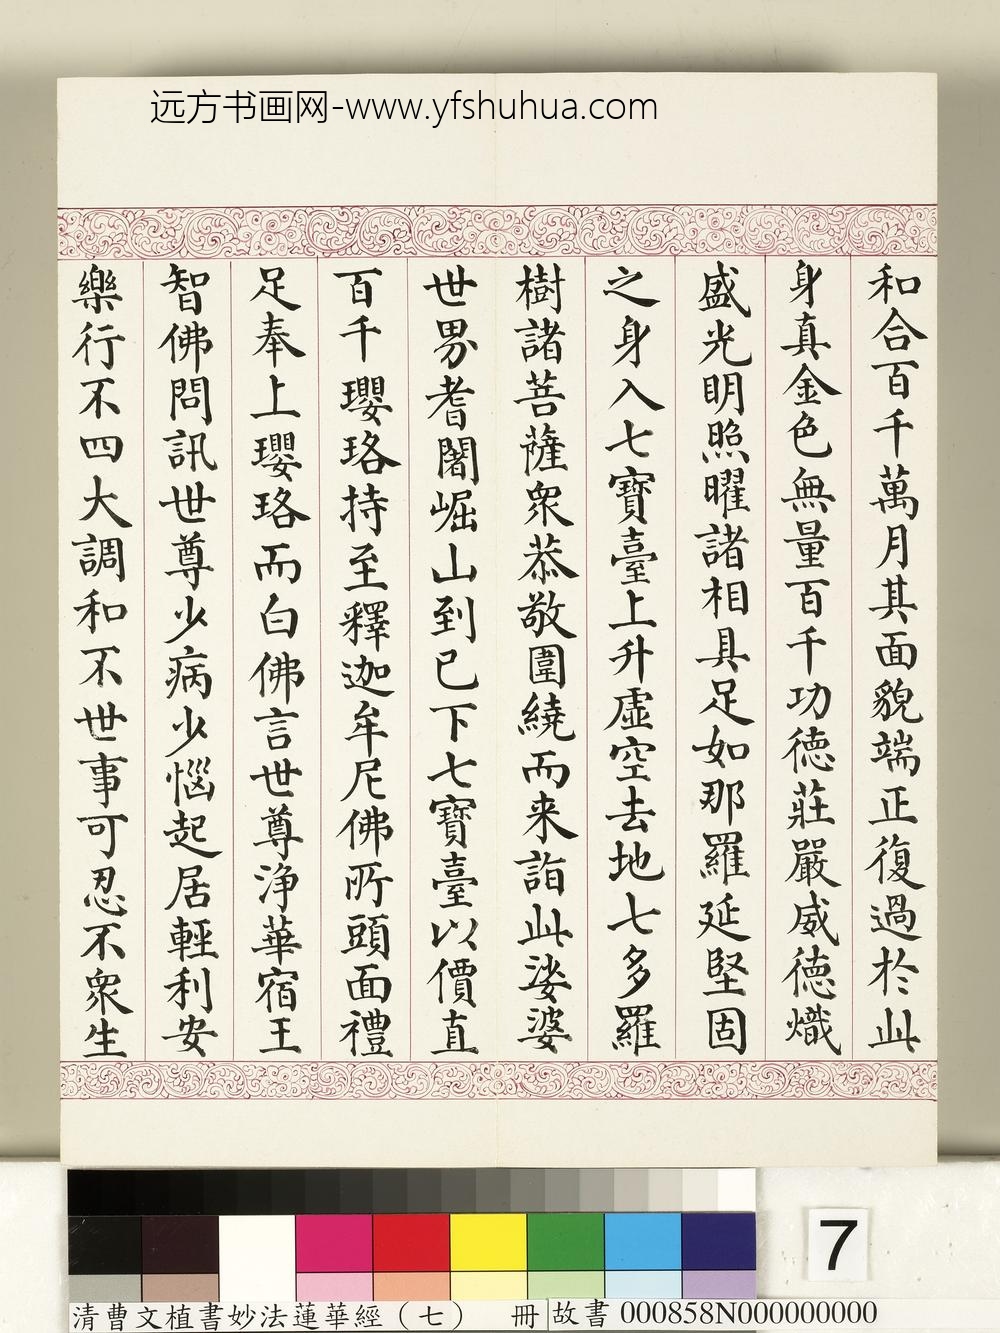 远方书画网-www.yfshuhua.com
和合百千萬月其面貌端正復過於此
身真金色無量百千功德莊嚴威德熾
盛光明照曜諸相具足如那羅延堅固
之身入七寶臺上升虛空去地七多羅
樹諸菩薩衆恭敬圍繞而来詣此娑婆
世界耆闍崛山到已下七寶臺以價直
百千瓔珞持至釋迦牟尼佛所頭面禮
足奉上瓔珞而白佛言世尊淨華宿王
智佛問訊世尊少病少惱起居輕利安
樂行不四大調和不世事可忍不衆生
7
清曹文植書妙法蓮華經（七） 冊
故書 000858N000000000